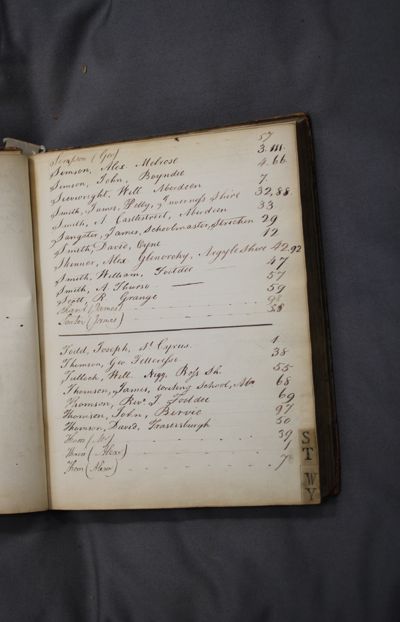 Simpson (Geo) 57
Simson, Alex. Melrose 3.111.
Simson, John, Boyndie 4.66.
Sievwright, Will. Aberdeen 7
Smith, James, Inverness Shire 32,88.
Smith, A. Castlestreet, Aberdeen 33
Sangster, James, Schoolmaster, Strichen 29
Smith, David, Cyne 12
Skinner, Alex Glenorchy, Argyleshire 42.92
Smith, William, Footdee 47
Smith, A Thurso 57
Scott, R. Grange 59
(James) 98
(James) 58
Todd, Joseph, St Cyrus. 1
Thomson, Geo Fettercosse 38
Tulloch, Will. Nigg, Ross Sh. 55
Thomson, James, School, Abn 68
Thomson, Revd. J. Footdee 69
Thomson, John, Bervie 97
Thomson, David, Frasersburgh 50
39
Thom (Alexr) 6
Thom (Alexr) 7
S T
W Y